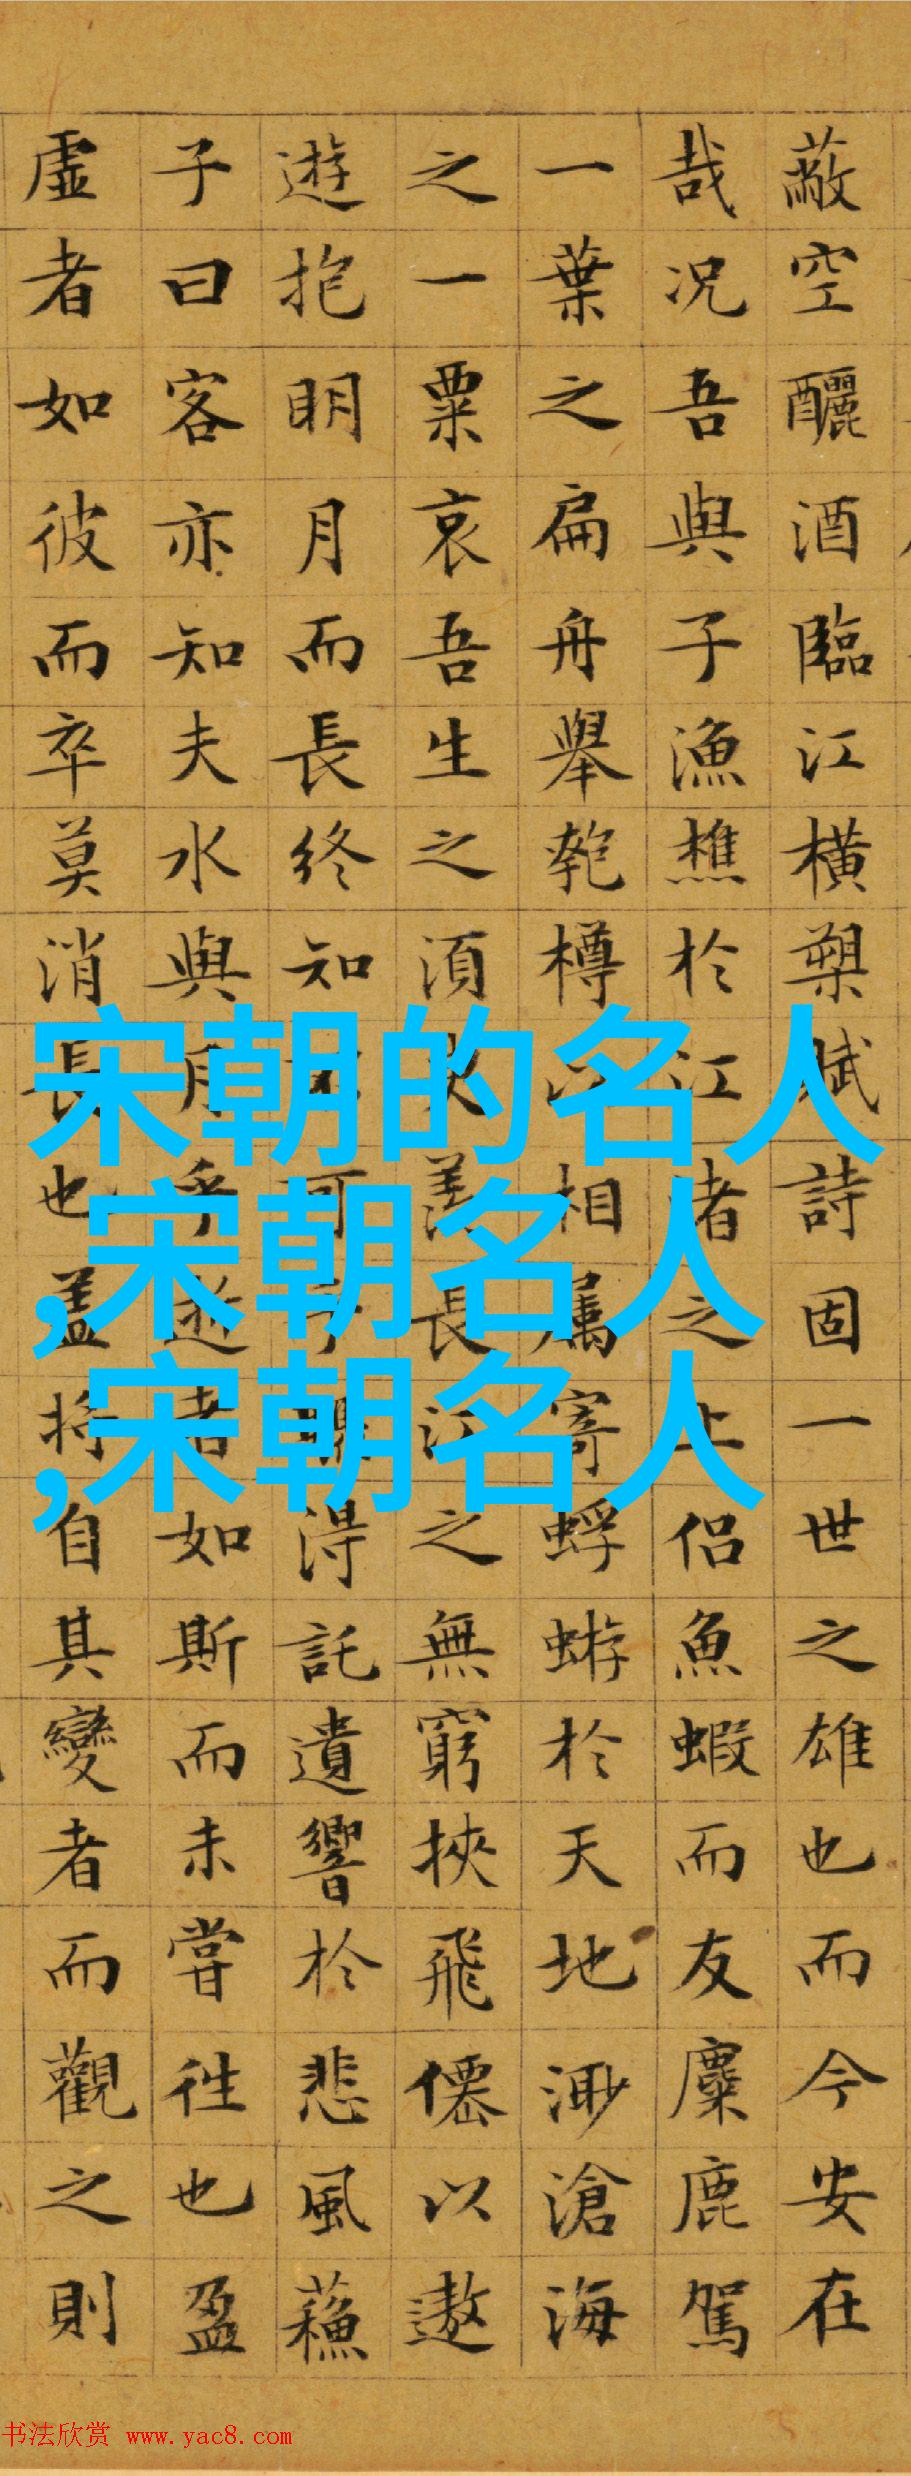 蔽空釃酒臨江橫槊賦詩固一世之雄也而今安在
哉况吾與子漁樵於江渚之上侶魚蝦而友麋鹿駕
一葉之扁舟舉匏樽以相屬寄蜉蝣於天地渺滄海
之一粟哀吾生之須臾羨長江之無窮挾飛僊以遨
遊抱明月而長終知不可乎驟得託遺響於悲風蘓
子曰客亦知夫水與月乎逝者如斯而未嘗往也盈
虛者如彼而卒莫消長也蓋將自其變者而觀之則
宋朝的名人
,宋朝名人
,宋朝名人
书法欣赏 www.yac8.com